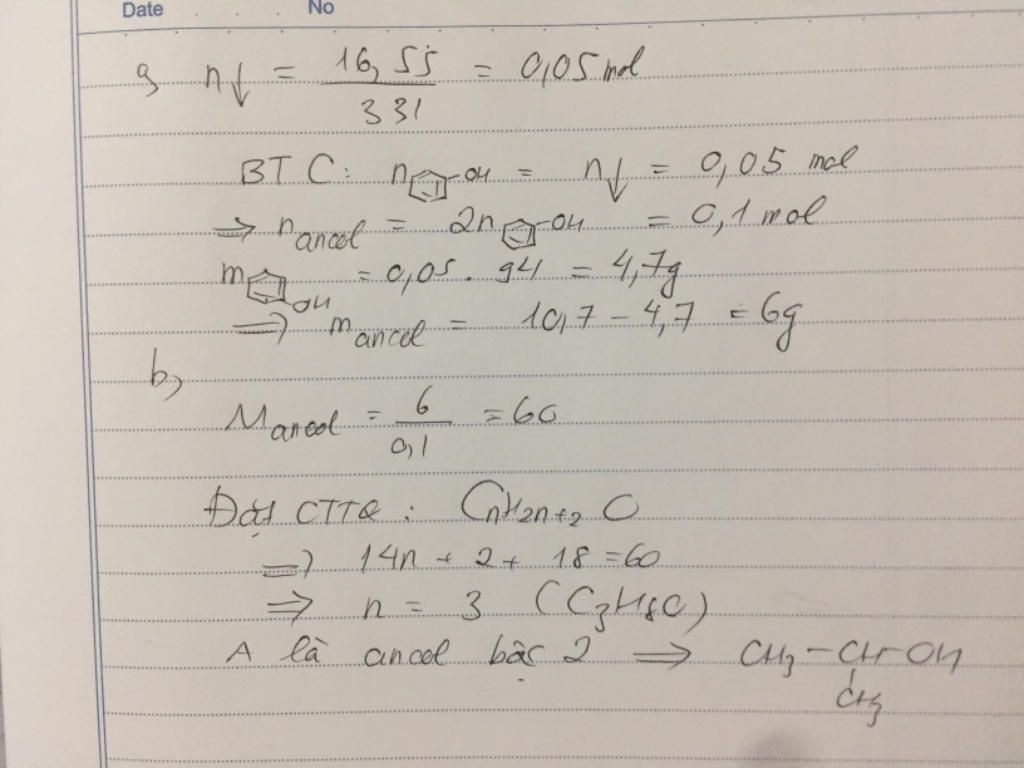 Date No
a, n↓ = 16,55 / 331 = 0,05 mol
BTC: n -OH = n↓ = 0,05 mol
=> n ancol = 2n -OH = 0,1 mol
m OH = 0,05 . 94 = 4,7g
=> m ancol = 10,7 - 4,7 = 6g
b,
M ancol = 6 / 0,1 = 60
Đặt CTTQ : CnH2n+2 O
=> 14n + 2 + 18 = 60
=> n = 3 (C3H8O)
A là ancol bậc 2 => CH3 - CH - OH
CH3